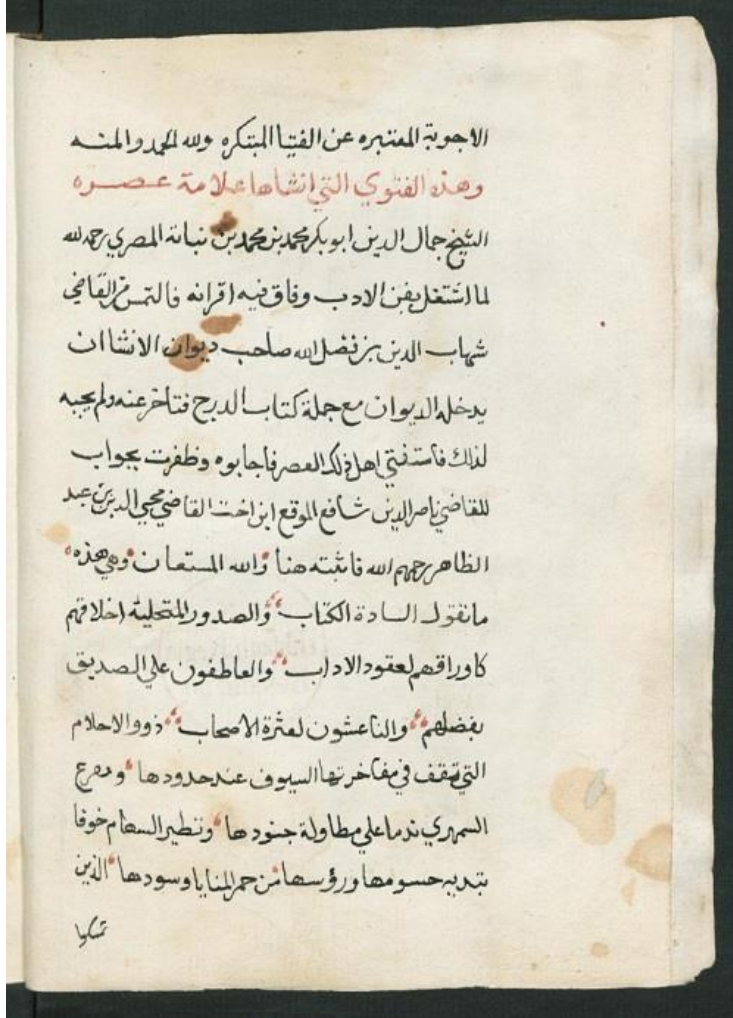 الاجوبة المعتبره عن الفتيا المبتكره ولله الحمد والمنه
وهذه الفتوي التي انشاها علامة عصره
الشيخ جمال الدين ابو بكر محمد بن محمد بن نباتة المصري رحمه الله
لما اشتغل بفن الادب وفاق فيه اقرانه فالتمس من القاضي
شهاب الدين بن فضل الله صاحب ديوان الانشا ان
يدخله الديوان مع جملة كتاب الدرج فتاخر عنه ولم يجبه
لذلك فاستفتي اهل ذلك العصر فاجابوه وظفرت بجواب
للقاضي ناصر الدين شافع الموقع ابن اخت القاضي محيي الدين بن عبد
الظاهر رحمهم الله فاثبته هنا والله المستعان وهي هذه
ما تقول السادة الكتاب والصدور المتحلية اخلاقهم
كاوراقهم لعقود الاداب والعاطفون علي الصديق
بفضلهم والناعشون لعثرة الاصحاب ذوو الاحلام
التي تقف في مفاخرتها السيوف عند حدودها
السمهري ندما علي مطاولة جنودها وتطير السهام خوفا
حسومها ورؤسها من حمر المنايا وسودها الذين